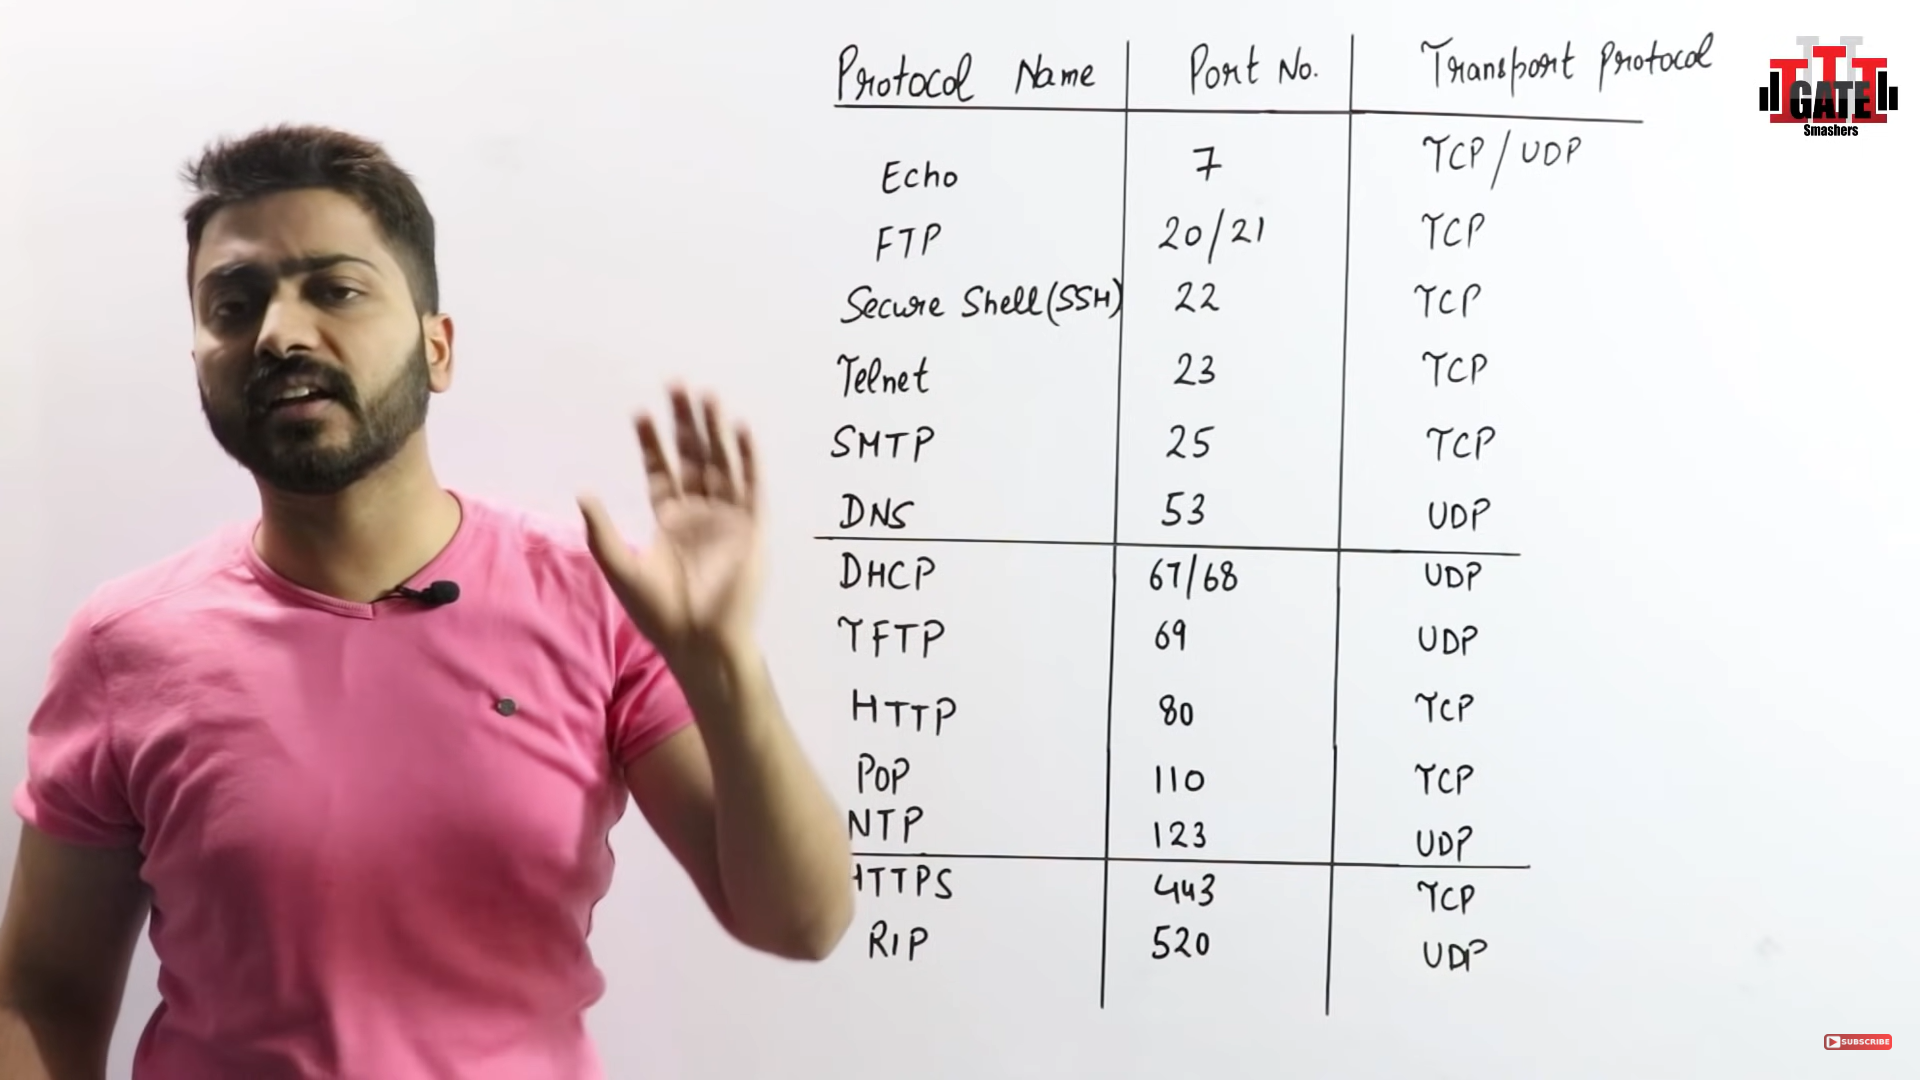 Protocol Name Port No. Transport Protocol
Echo 7 TCP/UDP
FTP 20/21 TCP
Secure Shell(SSH) 22 TCP
Telnet 23 TCP
SMTP 25 TCP
DNS 53 UDP
DHCP 67/68 UDP
TFTP 69 UDP
HTTP 80 TCP
POP 110 TCP
NTP 123 UDP
HTTPS 443 TCP
RIP 520 UDP
GATE
Smashers
SUBSCRIBE